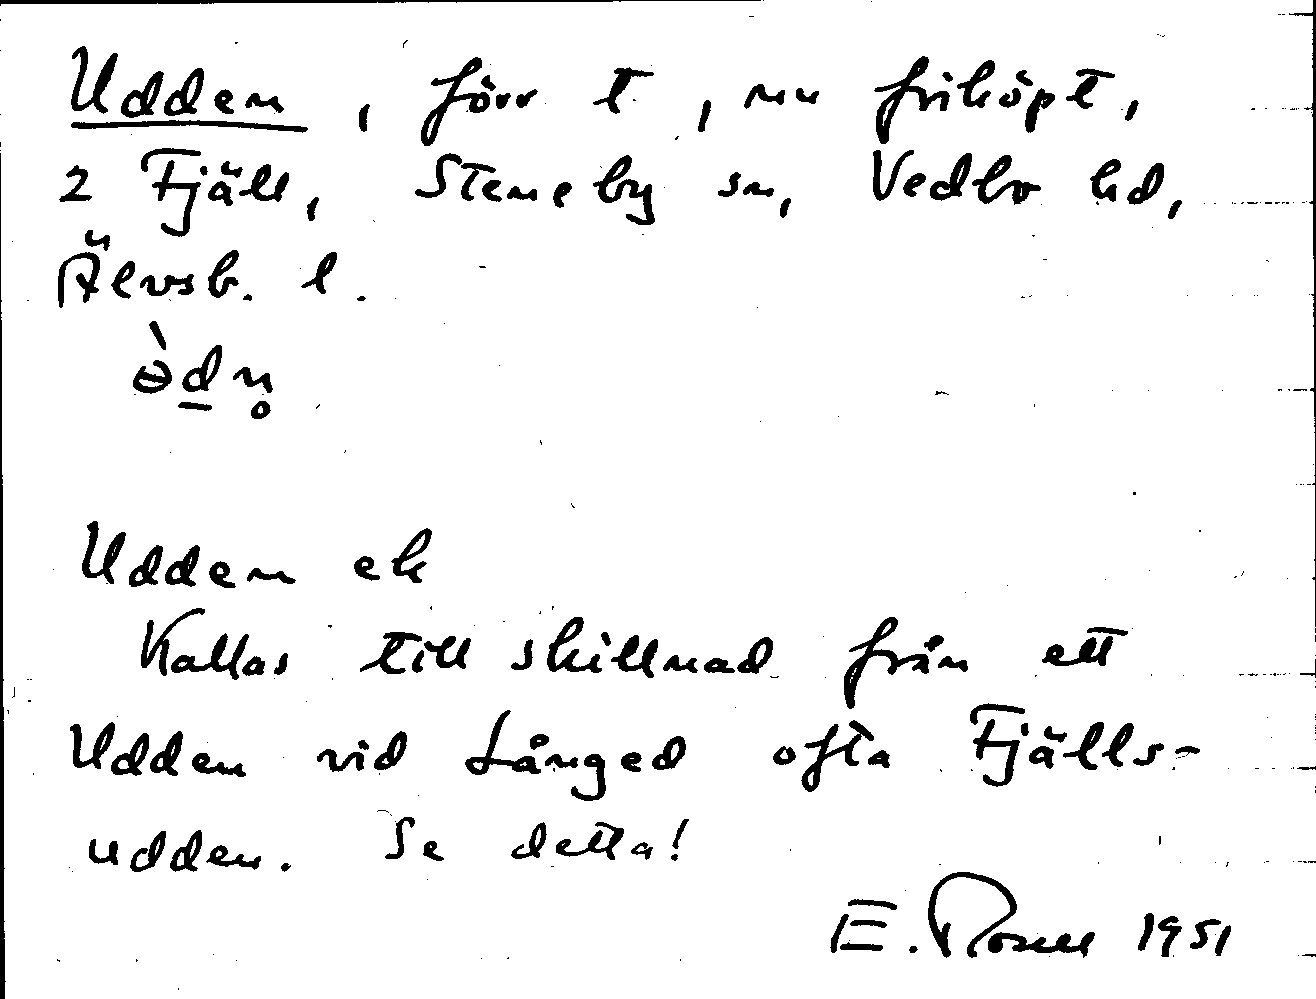 Udden, förr t, nu friköpt,
2 Fjäll, Steneby sn, Vedbo hd,
Älvsb. l.
ɵ̀dn̥
Udden ek
Kallas till skillnad från ett
Udden vid Långed ofta Fjälls-
udden. Se detta!
E. Rosell 1951